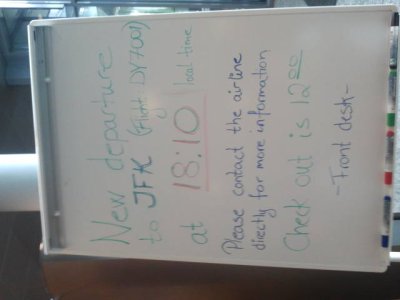 New departure
to JFK (Flight DY7001)
at 18:10 local time
Please contact the airline
directly for more information
Check out is 12 00
-Front desk-